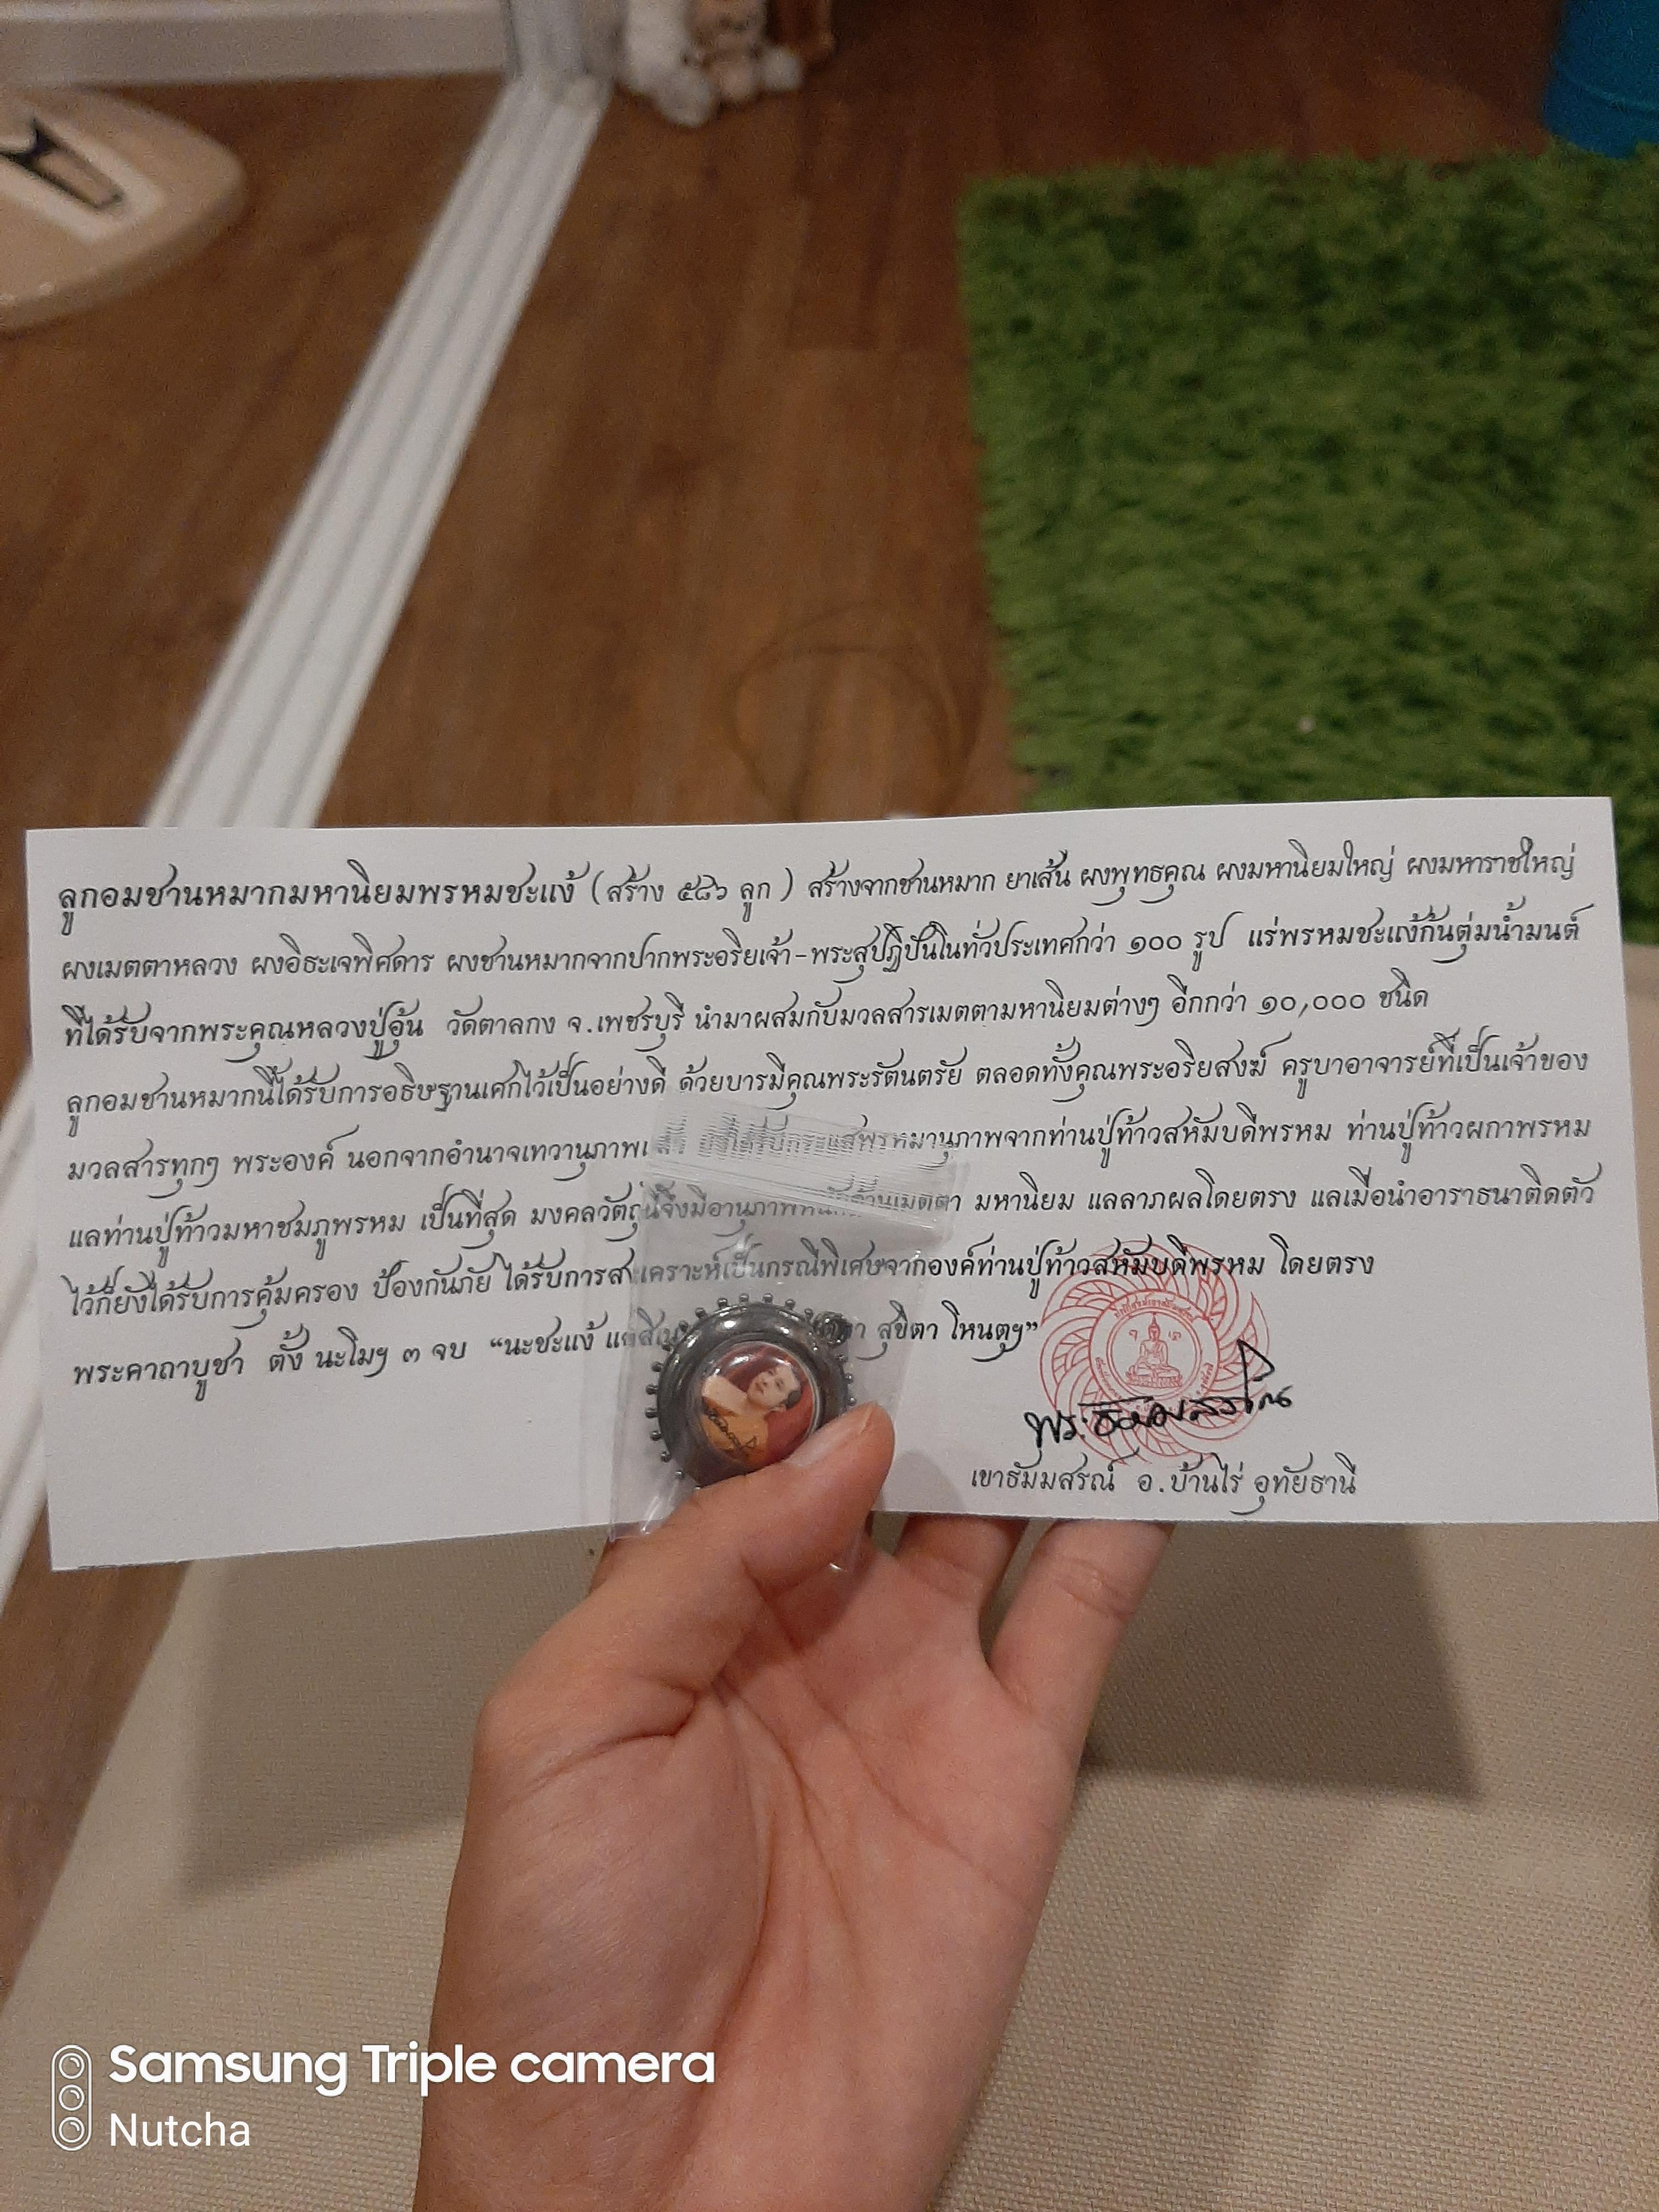 ลูกอมชานหมากมหานิยมพรหมชะแง้ (สร้าง ๕๘๖ ลูก ) สร้างจากชานหมาก ยาเส้น ผงพุทธคุณ ผงมหานิยมใหญ่ ผงมหาราชใหญ่
ผงเมตตาหลวง ผงอิธะเจพิศดาร ผงชานหมากจากปากพระอริยเจ้า-พระสุปฏิปันโนทั่วประเทศกว่า ๑๐๐ รูป แร่พรหมชะแง้ก้นตุ่มน้ำมนต์
ที่ได้รับจากพระคุณหลวงปู่อุ้น วัดตาลกง จ.เพชรบุรี นำมาผสมกับมวลสารเมตตามหานิยมต่างๆ อีกกว่า ๑๐,๐๐๐ ชนิด
ลูกอมชานหมากนี้ได้รับการอธิษฐานเศกไว้เป็นอย่างดี ด้วยบารมีคุณพระรัตนตรัย ตลอดทั้งคุณพระอริยสงฆ์ ครูบาอาจารย์ที่เป็นเจ้าของ
มวลสารทุกๆ พระองค์ นอกจากอำนาจเทวานุภาพ ยังได้รับกระแสพรหมานุภาพจากท่านปู่ท้าวสหัมบดีพรหม ท่านปู่ท้าวผกาพรหม
แลท่านปู่ท้าวมหาชมภูพรหม เป็นที่สุด มงคลวัตถุนี้จึงมีอานุภาพหนักด้านเมตตา มหานิยม แลลาภผลโดยตรง แลเมื่อนำอาราธนาติดตัว
ไว้ก็ยังได้รับการคุ้มครอง ป้องกันภัย ได้รับการสงเคราะห์เป็นกรณีพิเศษจากองค์ท่านปู่ท้าวสหัมบดีพรหม โดยตรง
พระคาถาบูชา ตั้ง นะโมฯ ๓ จบ “นะชะแง้ สุขิตา โหนตุฯ”
เขาธัมมสรณ์ อ.บ้านไร่ อุทัยธานี
Samsung Triple camera
Nutcha